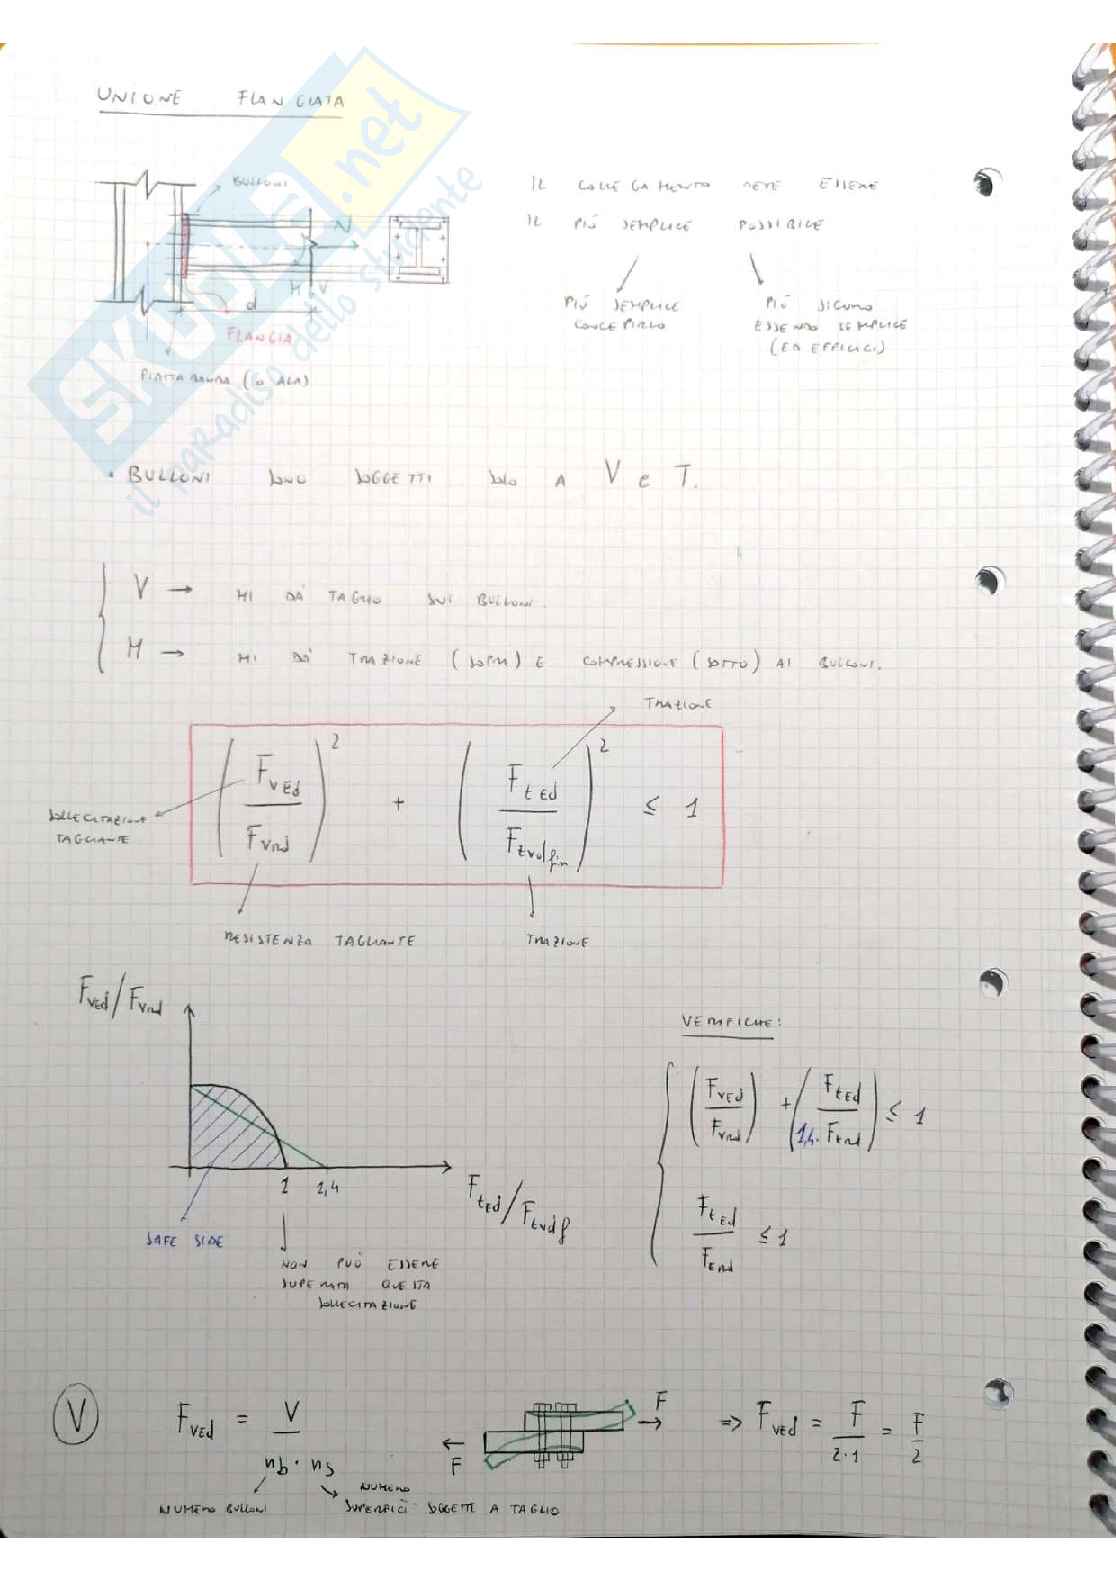 UNIONE FLANGIATA
BULLONI
N
M
V
d
FLANGIA
PIATTABANDA (O ALA)
IL COLLEGAMENTO DEVE ESSERE
IL PIÙ SEMPLICE POSSIBILE
PIÙ SEMPLICE
CONCEPIRLO
PIÙ SICURO
ESSENDO SEMPLICE
(ED EFFICACI)
• BULLONI SONO SOGGETTI SOLO A V e T.
V → MI DÀ TAGLIO SUI BULLONI.
M → MI DÀ TRAZIONE (SOPRA) E COMPRESSIONE (SOTTO) AI BULLONI.
TRAZIONE
(F_vEd / F_vRd)² + (F_tEd / F_tRd,fin)² ≤ 1
SOLLECITAZIONE
TAGLIANTE
RESISTENZA TAGLIANTE
TRAZIONE
F_vEd/F_vRd
1
1,4
F_tEd/F_tRdf
SAFE SIDE
NON PUÒ ESSERE
SUPERATA QUESTA
SOLLECITAZIONE
VERIFICHE:
(F_vEd / F_vRd) + (F_tEd / 1,4·F_tRd) ≤ 1
F_tEd / F_tRd ≤ 1
V
F_vEd = V / nb · ns
NUMERO BULLONI
NUMERO
SUPERFICI SOGGETTE A TAGLIO
F
F
⇒ F_vEd = F / 2·1 = F / 2
SKUOLA.net
il paradiso dello studente